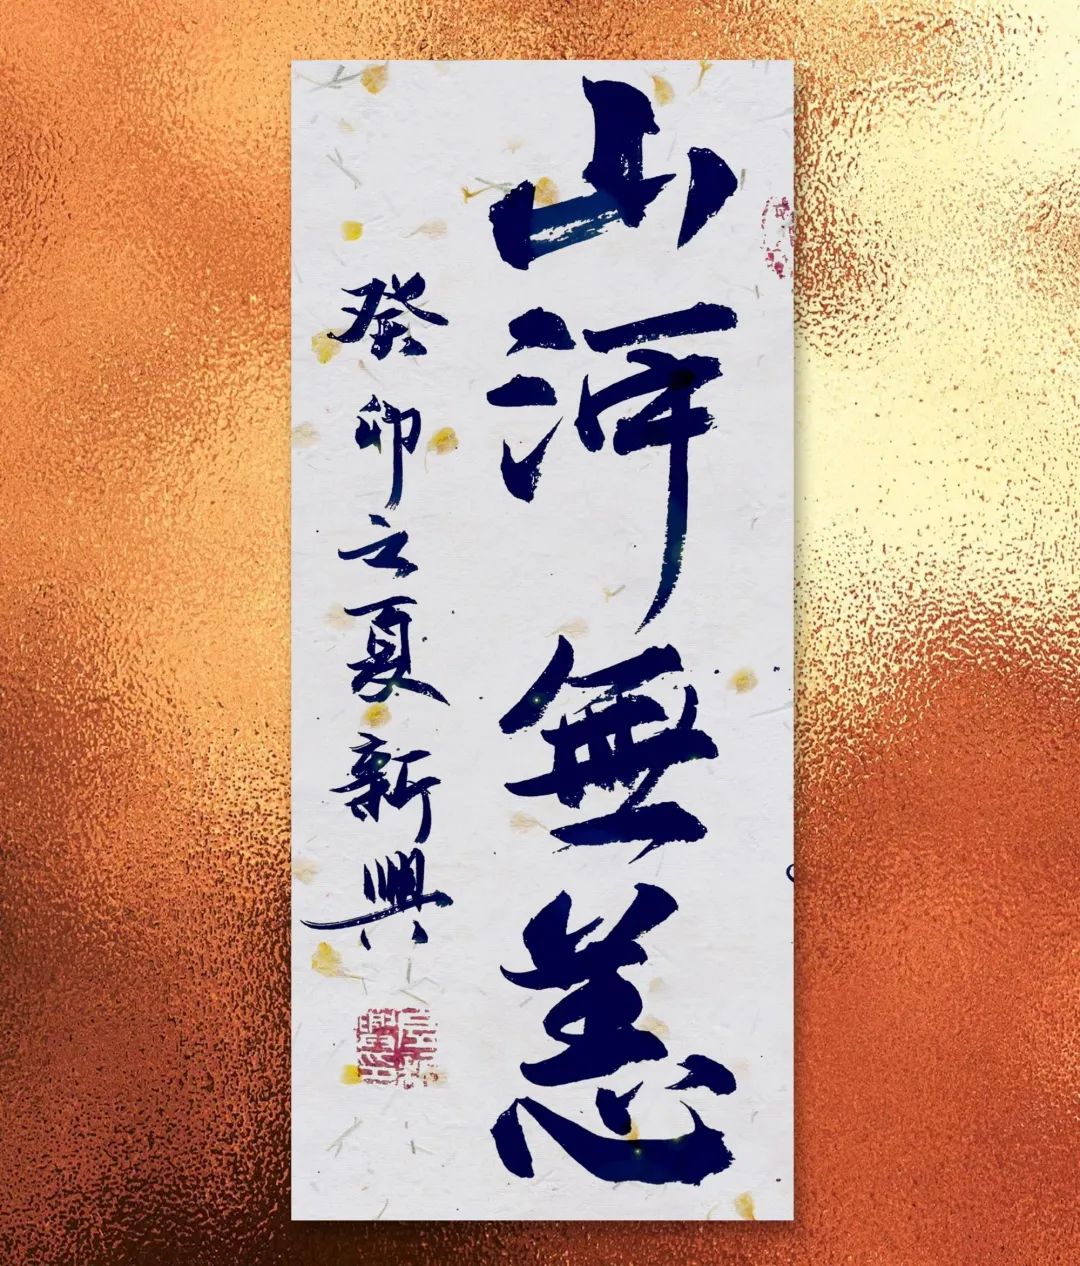 山河無恙
癸卯立夏新興